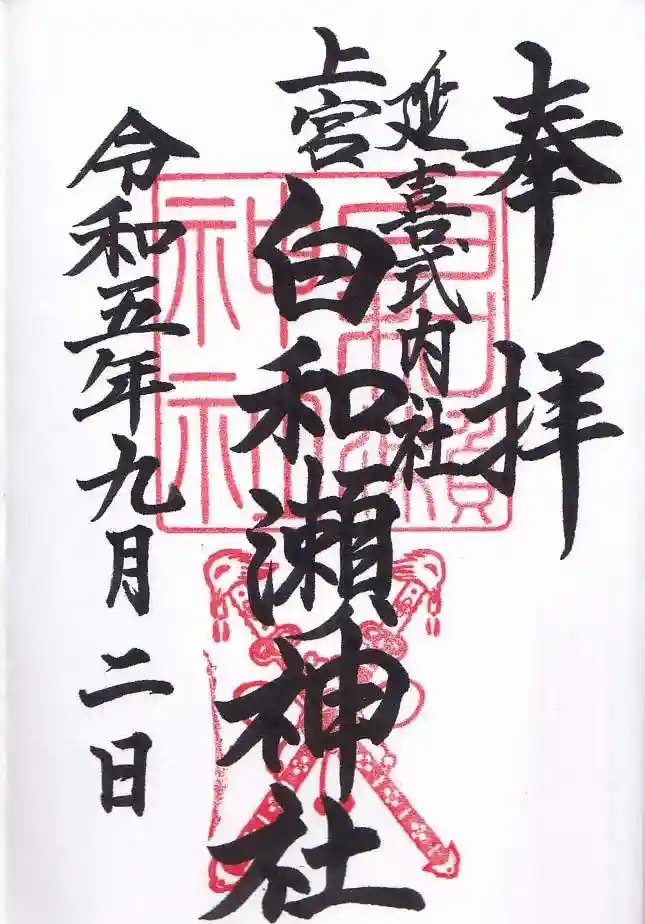 奉拝
延喜式内社
上宮
白和瀬神社
令和五年九月二日
白和瀬神社